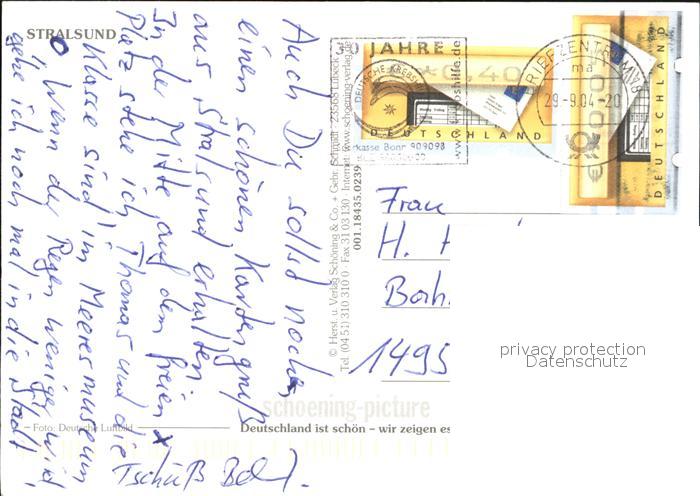 STRALSUND
Auch Du sollst noch
einen schönen Kartengruß
aus Stralsund erhalten.
In der Mitte auf dem freien x
Platz stehe ich, Thomas und die
Klasse sind im Meeresmuseum
Wenn der Regen weniger wird,
gehe ich noch mal in die Stadt!
Tschüß
Foto: Deutsche Luftbild
© Herst. u. Verlag Schöning & Co. + Gebr. Schmidt · 23568 Lübeck
Tel. (04 51) 310 310 0 · Fax 31 03 130 · Internet: www.schoening-verlag.de
001.18435.0239
schoening-picture
Deutschland ist schön – wir zeigen es
30 JAHRE
DEUTSCHE KREBSHILFE
www.krebshilfe.de
Sparkasse Bonn 909093
*0,40
DEUTSCHLAND
BRIEFZENTRUM
ma
29.-9.04-20
DEUTSCHLAND
Frau
H.
149
privacy protection
Datenschutz